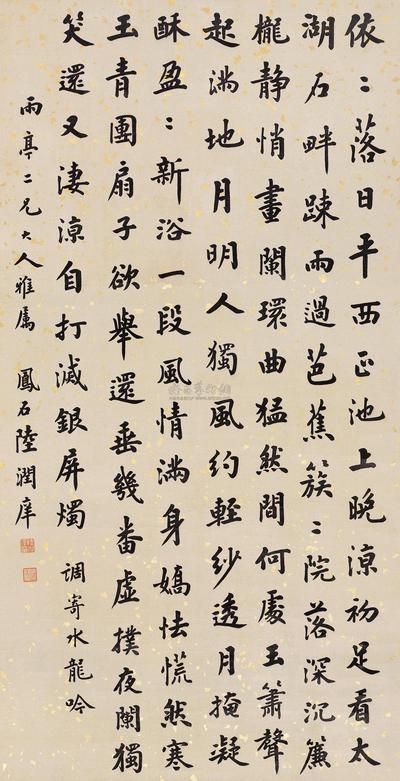 依〻落日平西正池上晚凉初足看太
湖石畔疎雨過芭蕉簇〻院落深沉簾
櫳静悄畫闌環曲猛然間何處玉簫聲
起滿地月明人獨風約輕紗透月掩凝
酥盈〻新浴一段風情滿身嬌怯慌然寒
玉青團扇子欲舉還垂幾畨虚撲夜闌獨
笑還又淒凉自打滅銀屏燭 調寄水龍吟
雨亭二兄大人雅属 鳳石陸潤庠